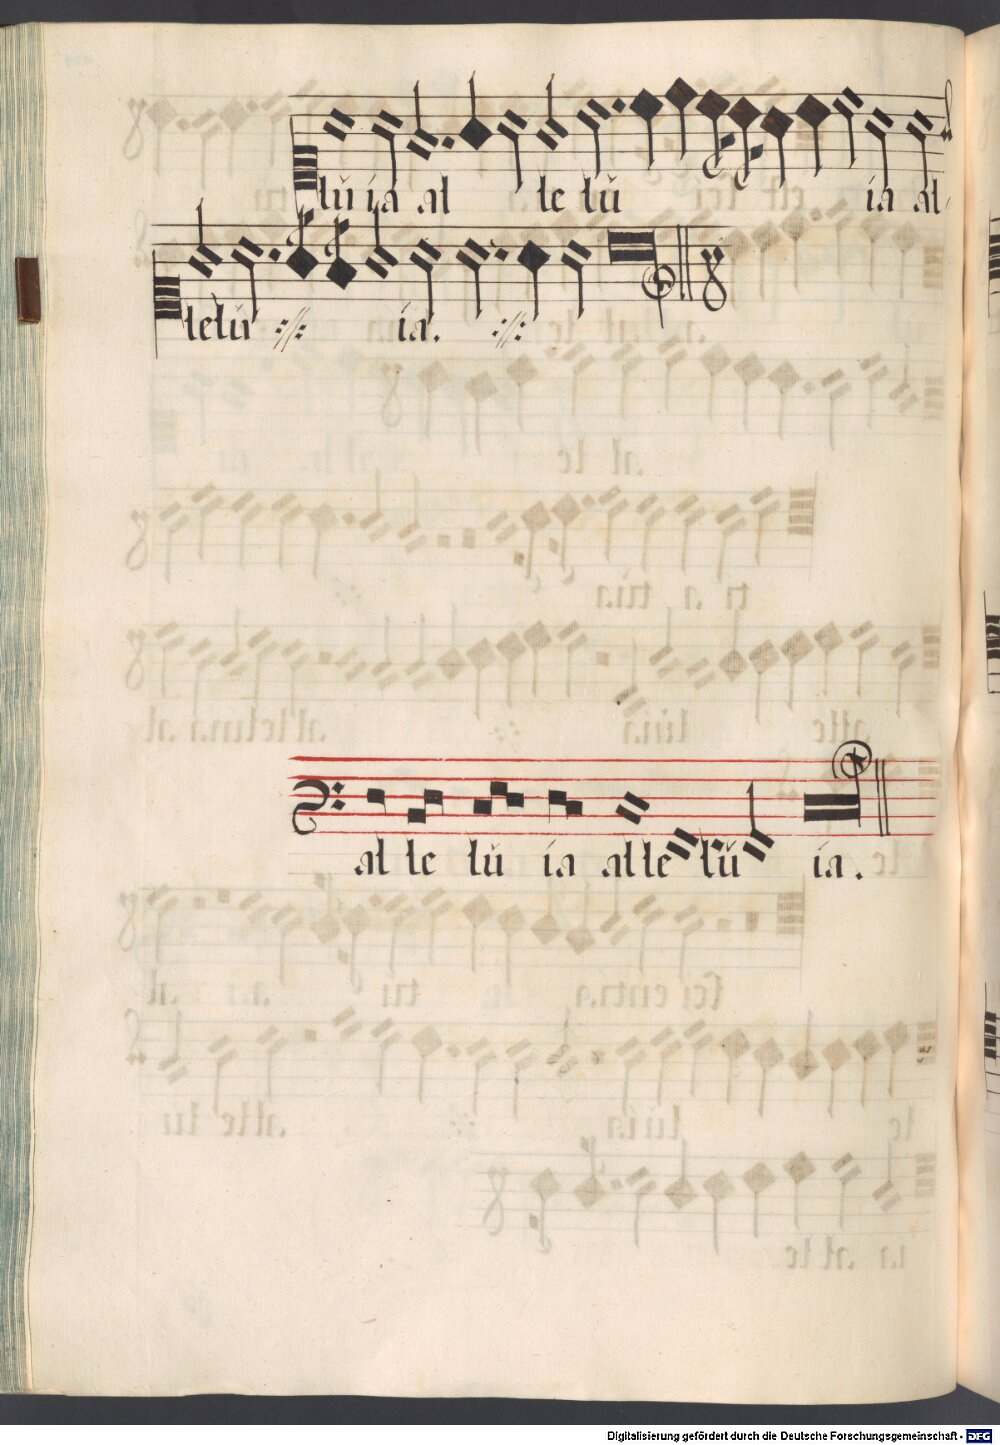 lŭ ia al le lŭ ia al-
lelŭ ://: ia. ://:
al le lŭ ia alle lŭ ia.
Digitalisierung gefördert durch die Deutsche Forschungsgemeinschaft - DFG